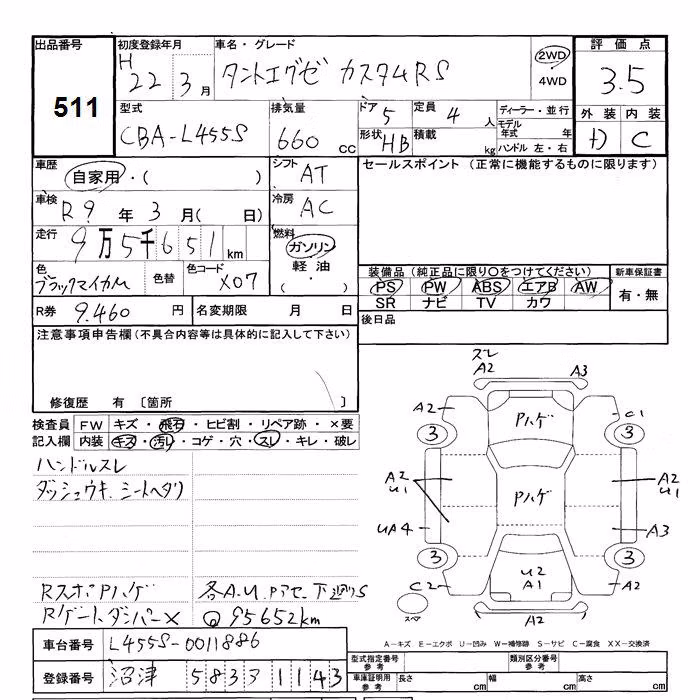 出品番号 初度登録年月 車名・グレード 評価点
511
H 22 3月 タントエグゼ カスタムRS 2WD 4WD 3.5
型式 排気量 ドア 5 定員 4人 ディーラー・並行 外装 内装
CBA-L455S 660cc 形状 HB 積載 kg モデル年式 年 ハンドル 左・右 C
車歴 自家用・( ) シフト AT セールスポイント (正常に機能するものに限ります)
車検 R9年3月( 日) 冷房 AC
走行 9万5千651km 燃料 ガソリン 軽油 ( ・ )
色 ブラックマイカM 色替 色コード X07 装備品 (純正品に限り○をつけてください) 新車保証書
PS PW ABS エアB AW 有・無
SR ナビ TV カワ
R券 9.460円 名変期限 月 日 後日品
注意事項申告欄(不具合内容等は具体的に記入して下さい)
修復歴 有 〔箇所 〕
検査員 FW キズ・飛石・ヒビ割・リペア跡・×要
記入欄 内装 キズ・汚レ・コゲ・穴・スレ・キレ・破レ
ハンドルスレ
ダッシュウキ. シートヘタリ
RスポPハゲ 各A.U.Pアセ.下廻りS
Rゲートダンパー× @95652km
スレ
A2 A3
A2 Pハゲ C1
3 3
A2 U1 Pハゲ A2 U1
UA4 A3
3 3
C2 U2 A1 A2
スペア A2
A-キズ E-エクボ U-凹み W-補修跡 S-サビ C-腐食 XX-交換済
車台番号 L455S-0011886
型式指定番号 参考 類別区分番号 参考
登録番号 沼津 583 ワ 1143
車庫証明用 参考 長さ cm 幅 cm 高さ cm